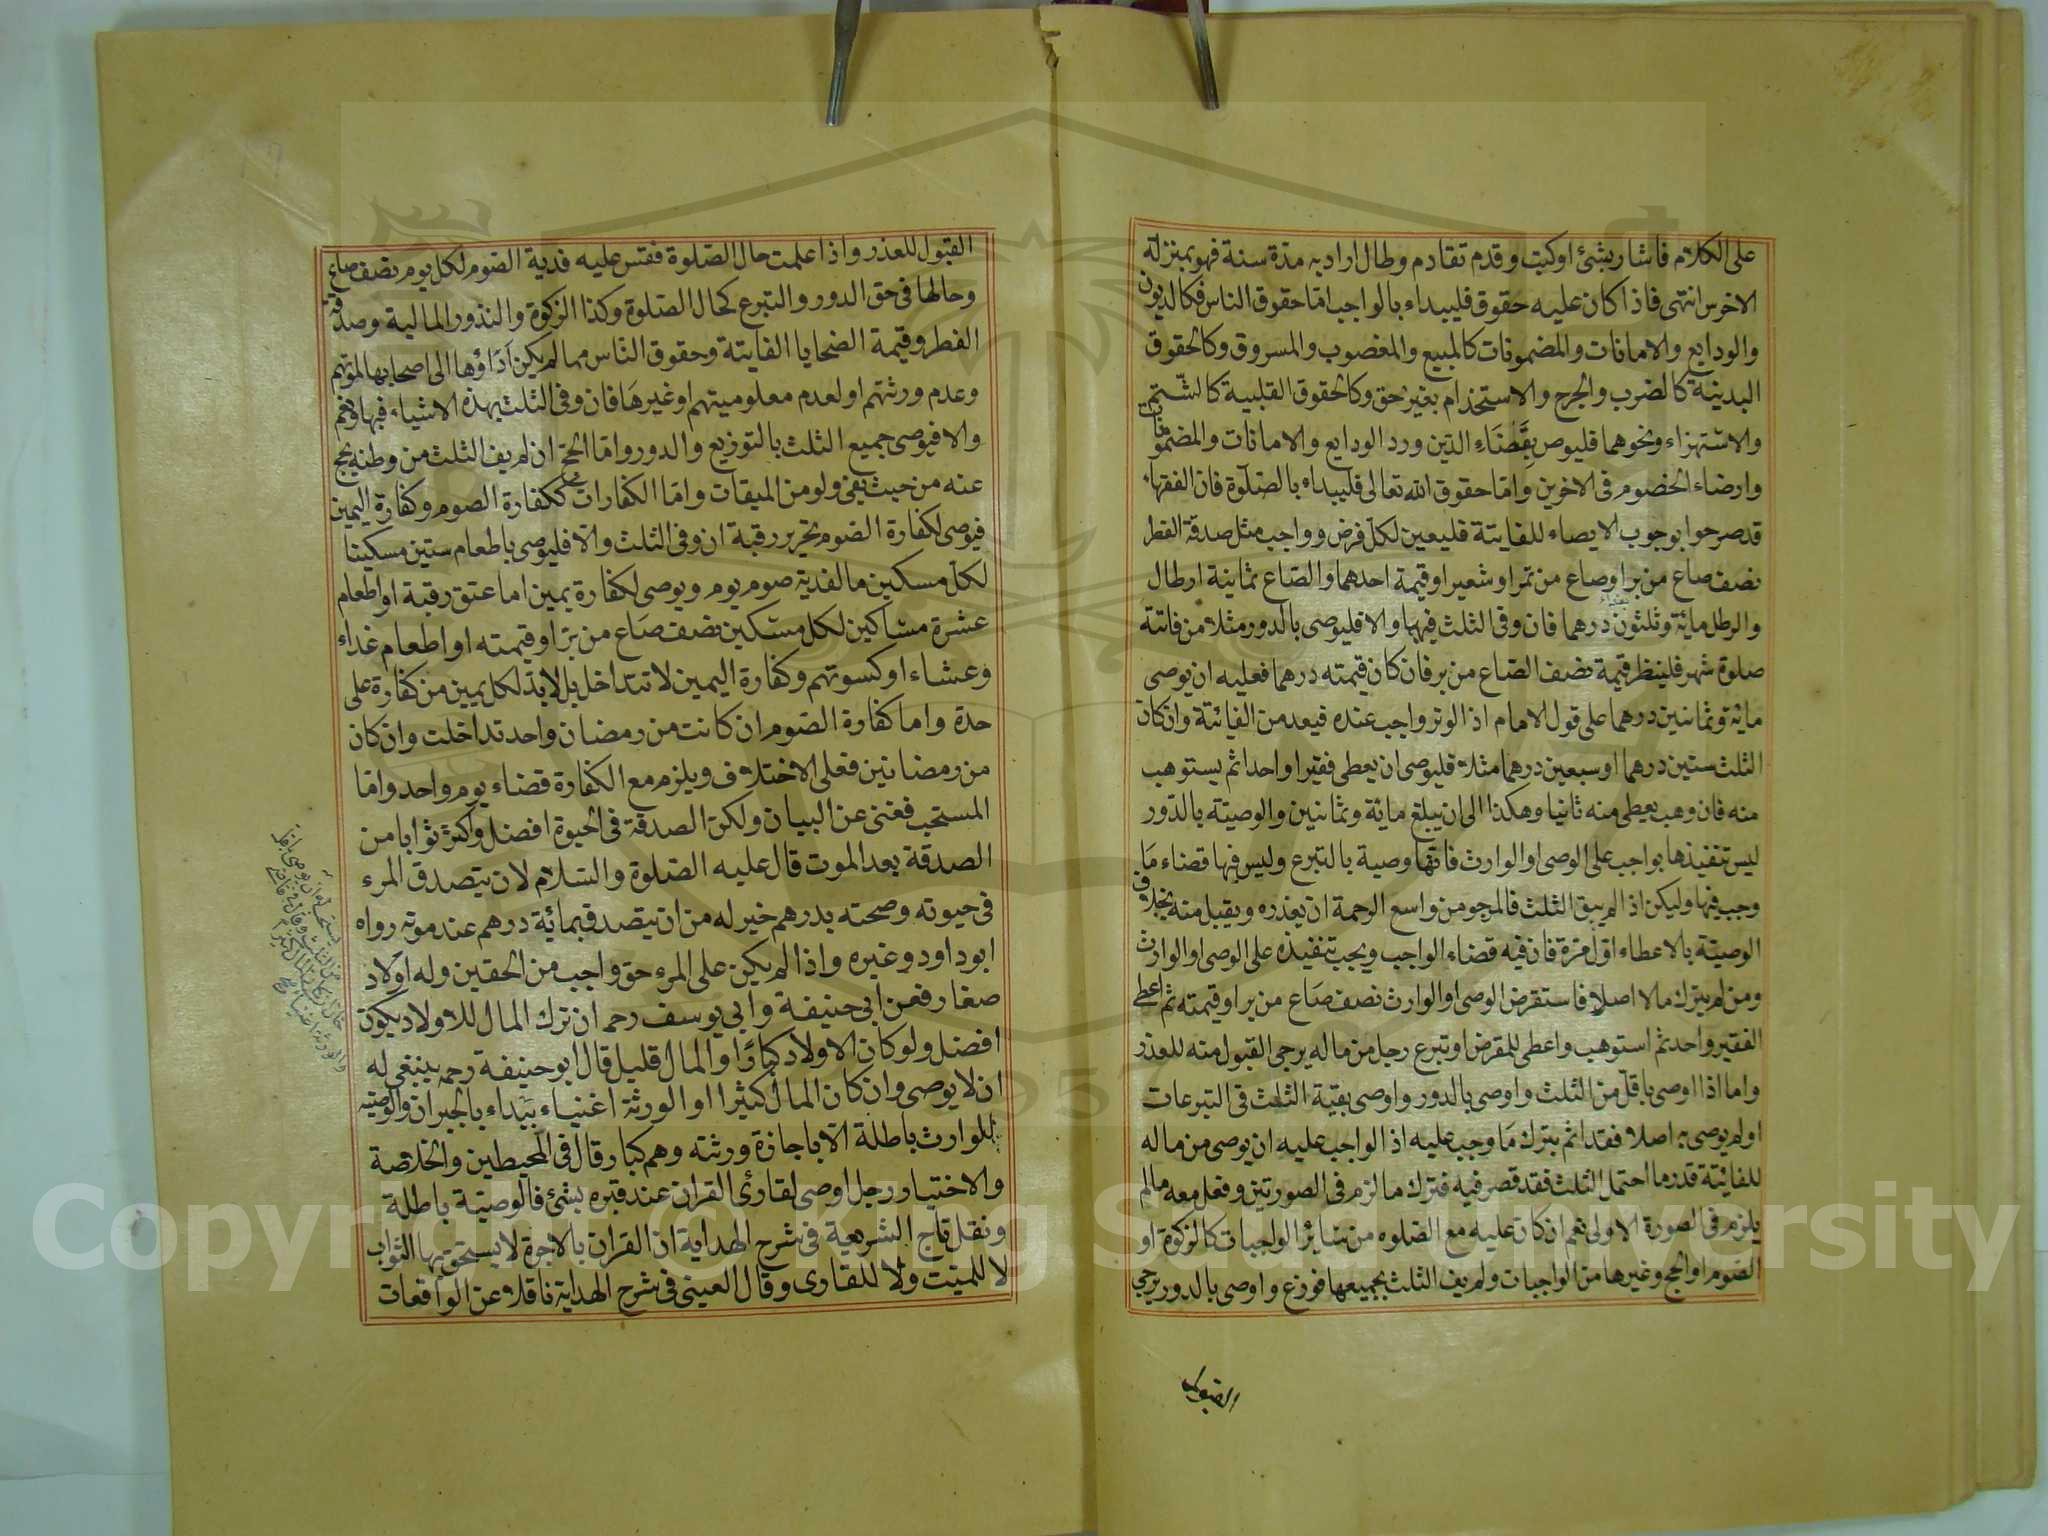 على الكلام فاشار بشئ او كتب وقدم تقادم وطال اراد به مدة سنة فهو بمنزلة
الاخرس انتهى فاذا كان عليه حقوق فليبداء بالواجب امّا حقوق الناس فكالديون
والودايع والامانات والمضمونات كالمبيع والمغصوب والمسروق وكالحقوق
البدنية كالضرب والجرح والاستخدام بغير حق وكالحقوق القلبية كالشتم
والاستهزاء ونحوهما فليوص بقضاء الدين ورد الودايع والامانات والمضمونات
وارضاء الخصوم فى الاخرين وامّا حقوق الله تعالى فليبداء بالصلوة فان الفقهاء
قد صرحوا بوجوب الايصاء للفايتة فليعين لكل فرض وواجب مثل صدقة الفطر
نصف صاع من بر او صاع من تمر او شعير او قيمة احدهما والصاع ثمانية ارطال
والرطل مائة وثلثون درهما فان وفى الثلث فيها والا فليوصى بالدور مثلا من فاتته
صلوة شهر فلينظر قيمة نصف الصاع من بر فان كان قيمته درهما فعليه ان يوصى
مائة وثمانين درهما على قول الامام اذ الوتر واجب عنده فيعد من الفائتة وان كان
الثلث ستين درهما او سبعين درهما مثلا فليوصى ان يعطى فقيرا واحدا ثم يستوهب
منه فان وهب يعطى منه ثانيا وهكذا الى ان يبلغ مائة وثمانين والوصيّة بالدّور
ليس تنفيذها بواجب على الوصى او الوارث فانها وصية بالتبرع وليس فيها قضاء ما
وجب فيها وليكن اذا لم يبق الثلث فالمرجو من واسع الرحمة ان يعذره ويقبل منه بخلاف
الوصيّة بالاعطاء اول مرة فان فيه قضاء الواجب ويجب تنفيذه على الوصى او الوارث
ومن لم يترك مالا اصلا فاستقرض الوصى او الوارث نصف صاع من بر او قيمته ثم اعطى
الفقير واحد ثم استوهب واعطى للمقرض او تبرع رجل من ماله يرجى القبول منه للعذر
واما اذا اوصى باقل من الثلث واوصى بالدور واوصى بقية الثلث فى التبرعات
او لم يوصى به اصلا فقد اثم بترك ما وجب عليه اذ الواجب عليه ان يوصى من ماله
للفائتة قدر ما احتمل الثلث فقد قصر فيه فترك ما لزم فى الصورتين وفعل معه ما لم
يلزم فى الصورة الاولى نعم ان كان عليه مع الصلوه من سائر الواجبات كالزكوة او
الصوم او الحج وغيرها من الواجبات ولم يف الثلث بجميعها فوزع واوصى بالدور يرجى
القبول
القبول للعذر واذا علمت حال الصّلوة فقس عليه فدية الصوم لكل يوم نصف صاع
وحالها فى حق الدور والتبرع كحال الصلوة وكذا الزكوة والنذور المالية وصدقة
الفطر وقيمة الضحايا الفايتة وحقوق الناس مما لم يكن اداؤها الى اصحابها لموتهم
وعدم ورثتهم او لعدم معلوميتهم او غيرها فان وفى الثلث بهذه الاشياء فبها ونعم
والا فيوصى جميع الثلث بالتوزيع والدور وامّا الحج ان لم يف الثلث من وطنه يحج
عنه من حيث يفى ولو من الميقات وامّا الكفارات ككفارة الصوم وكفارة اليمين
فيوصى لكفارة الصوم بتحرير رقبة ان وفى الثلث والا فليوصى باطعام ستين مسكينا
لكل مسكين ما لفدية صوم يوم ويوصى لكفارة يمين اما عتق رقبة او اطعام
عشرة مساكين لكل مسكين نصف صاع من بر او قيمته او اطعام غداء
وعشاء او كسوتهم وكفارة اليمين لا تتداخل بل لا بد لكل يمين من كفارة على
حدة واما كفارة الصوم ان كانت من رمضان واحد تداخلت وان كان
من رمضانين فعلى الاختلاف ويلزم مع الكفارة قضاء يوم واحد وامّا
المستحب فغنى عن البيان ولكن الصدقة فى الحيوة افضل واكثر ثوابا من
الصدقة بعد الموت قال عليه الصلوة والسلام لان يتصدق المرء
فى حيوته وصحته بدرهم خير له من ان يتصدق بمائة درهم عند موته رواه
ابو داود وغيره واذا لم يكن على المرء حق واجب من الحقين وله اولاد
صغار فعن ابى حنيفة وابى يوسف رحمه ان ترك المال للاولاد يكون
افضل ولو كان الاولاد كبارًا والمال قليل قال ابو حنيفة رحمه ينبغى له
ان لا يوصى وان كان المال كثيرا او الورثة اغنياء يبداء بالجيران والوصيّة
للوارث باطلة الا باجازة ورثته وهم كبار قال فى المحيطين والخلاصة
والاختيار رجل اوصى لقارئ القران عند قبره بشئ فالوصيّة باطلة
ونقل تاج الشريعة فى شرح الهداية ان القران بالاجرة لا يستحق بها الثواب
لا للميّت ولا للقارى وقال العينى فى شرح الهداية ناقلا عن الواقعات
Copyright © King Saud University
1957